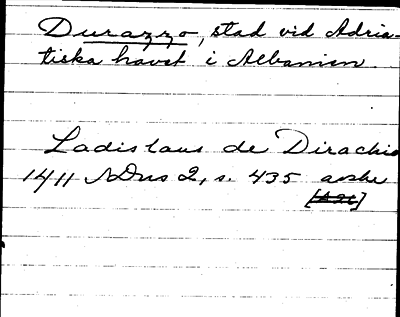 Durazzo, stad vid Adria-
tiska havet i Albanien.
Ladislaus de Dirachio
1411 NDns 2, s. 435 avskr
[A 20]